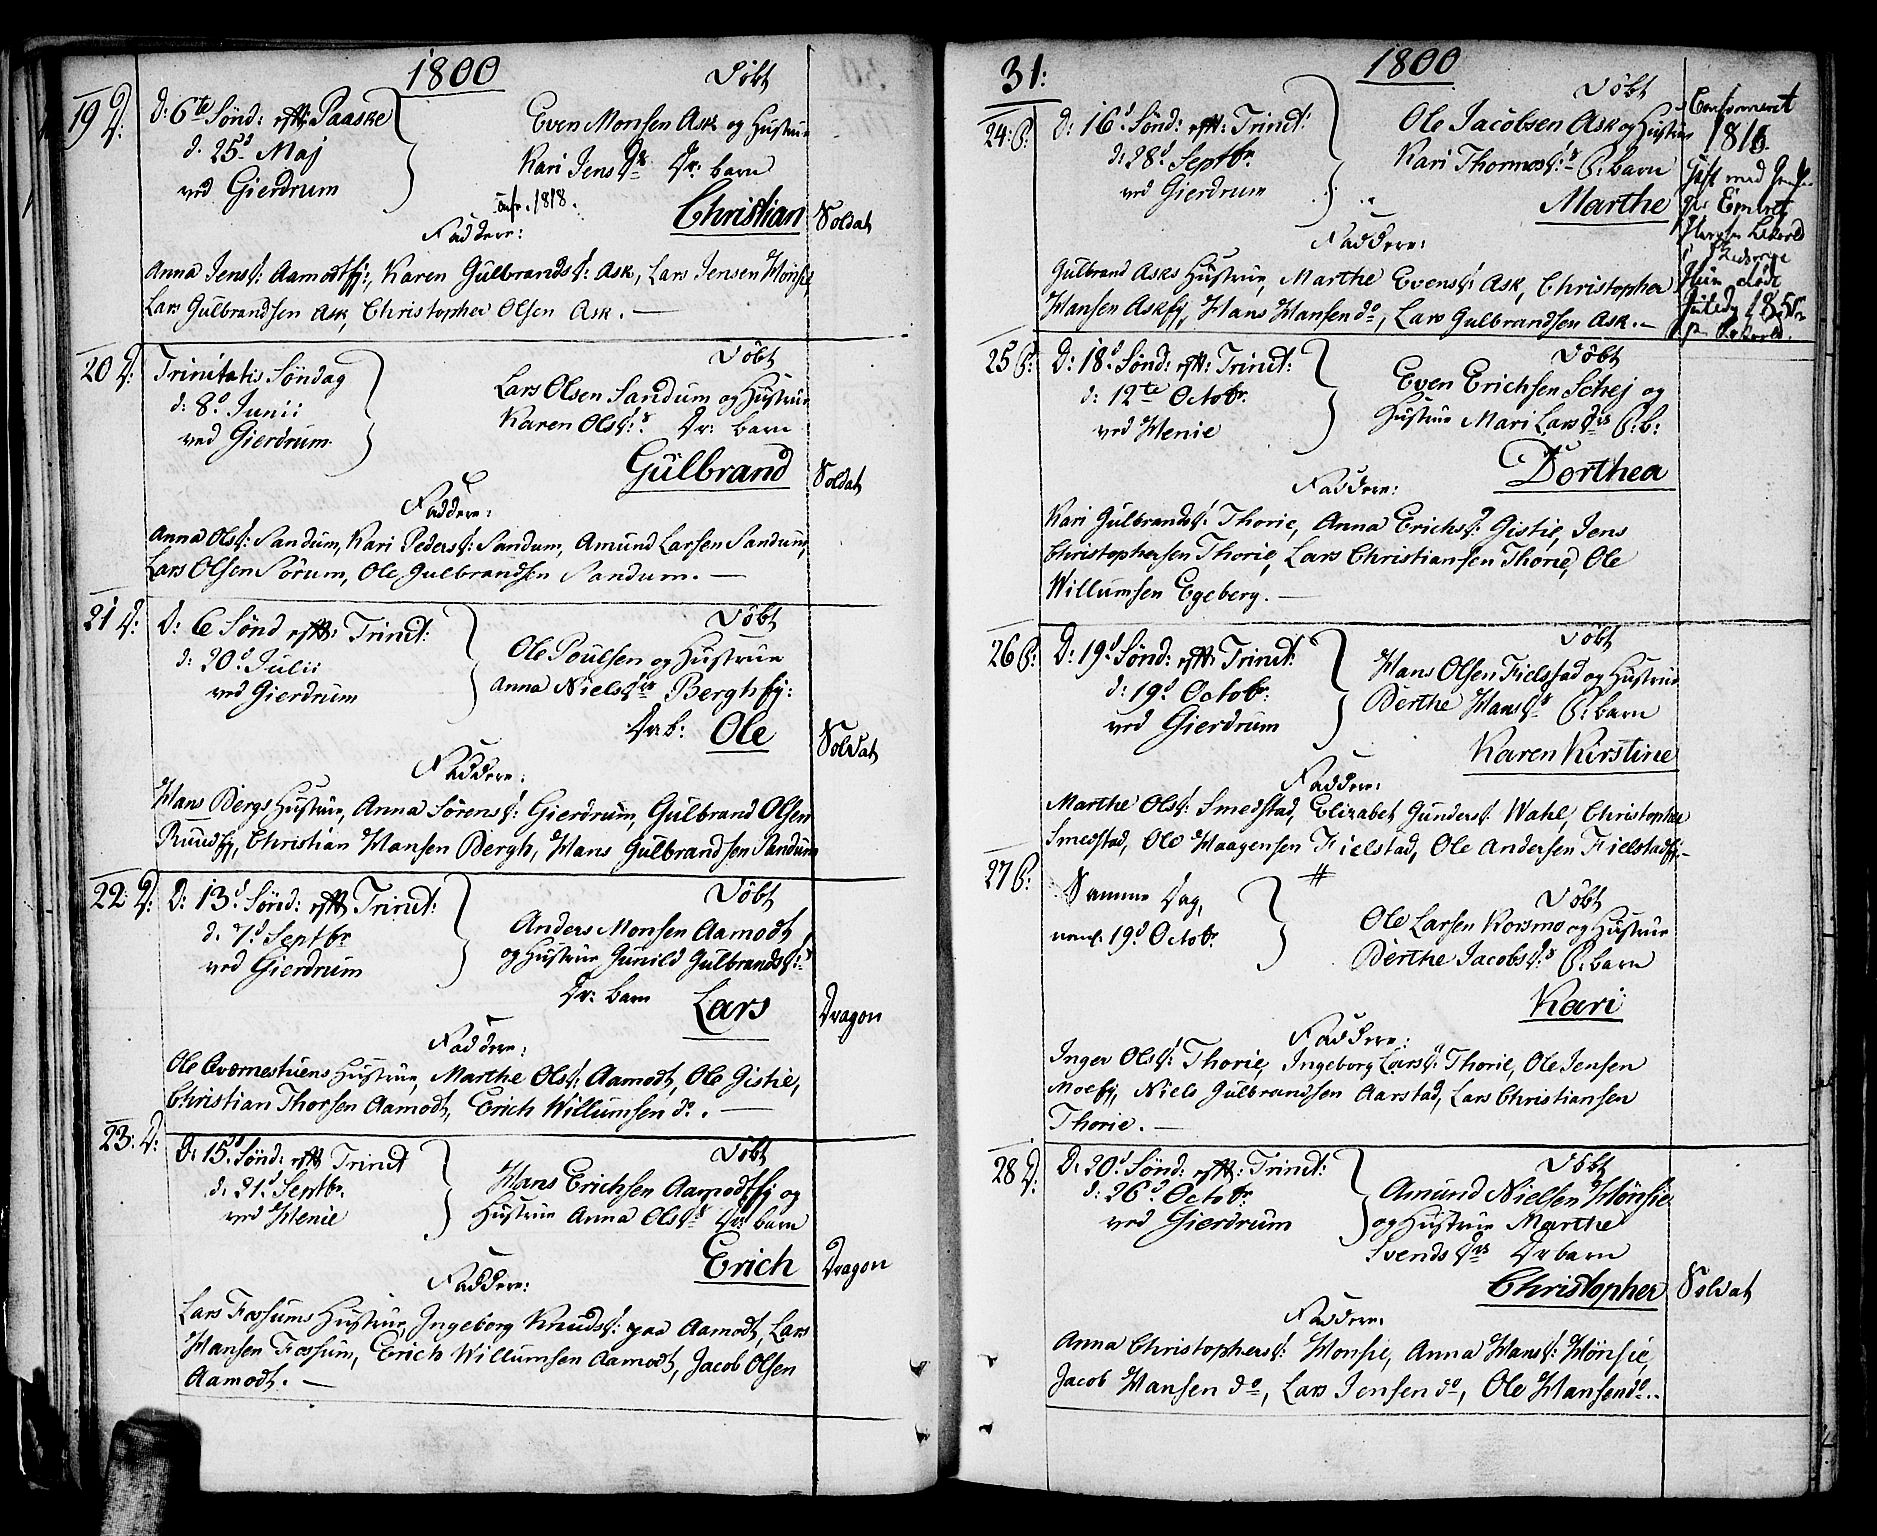 1800
19 D:
D: 6te Sönd: eftr Paaske
d. 25d Maj
ved Gierdrum
Döbt
Even Monsen Ask og Hustrue
Kari Jens Dr Dr: barn
Conf. 1818.
Christian
Soldat
Faddere:
Anna Jensd: Aamodtfj:, Karen Gulbrandsd: Ask, Lars Jensen Hönsie,
Lars Gulbrandsen Ask, Christopher Olsen Ask. —
20 D:
Trinitatis Söndag
d: 8d Junii
ved Gierdrum
Döbt
Lars Olsen Sandum og Hustrue
Karen Olsd: Dr: barn
Gulbrand
Soldat
Faddere:
Anna Olsd: Sandum, Kari Pedersd: Sandum, Amund Larsen Sandum,
Lars Olsen Sörum, Ole Gulbrandsen Sandum. —
21 D:
D: 6 Sönd eftr: Trinit:
d: 20d Julii
ved Gierdrum
Döbt
Ole Poulsen og Hustrue
Anna Niels Dr Berghfj:
Dr b: Ole
Soldat
Faddere:
Hans Bergs Hustrue, Anna Sörensd: Gierdrum, Gulbrand Olsen
Ruudfj, Christian Hansen Bergh, Hans Gulbrandsen Sandum
22 D:
D: 13d Sönd: eftr Trinit:
d. 7d Septbr
ved Gierdrum
Döbt
Anders Monsen Aamodt
og Hustrue Gunild Gulbrandsd:
Dr: barn Lars
Dragon
Faddere:
Ole Qværnestuens Hustrue, Marthe Olsd: Aamodt, Ole Gistie,
Christian Thorsen Aamodt, Erich Willumsen do. —
23: D:
D: 15d Sönd: eftr Trinit
d: 21d Septbr.
ved Henie
Döbt
Hans Erichsen Aamodtfj og
Hustrue Anna Ols Dr Dr: barn
Erich
Dragon
Faddere:
Lars Fossums Hustrue, Ingeborg Knudsd: paa Aamodt, Lars
Hansen Fossum, Erich Willumsen Aamodt, Jacob Olsen
Aamodt. —
31:
1800
24: P:
D: 16d Sönd: eftr: Trinit:
d: 28d Septbr.
ved Gierdrum
Döbt
Ole Jacobsen Ask og Hustrue
Kari Thomasd: P: barn
Marthe
Confirmeret
1816.
Gift med
Embret
Hun döde
Faddere:
Gulbrand Asks Hustrue, Marthe Evensd: Ask, Christopher
Hansen Askfj, Hans Hansen do, Lars Gulbrandsen Ask. —
25 P:
D: 18d Sönd: eftr: Trinit:
d: 12te Octobr.
ved Henie
Döbt
Even Erichsen Schej og
Hustrue Mari Lars Drs P: b:
Dorthea
Faddere:
Kari Gulbrandsd: Thorie, Anna Erichsd: Gistie, Jens
Christophersen Thorie, Lars Christiansen Thorie, Ole
Willumsen Egeberg. —
26 P:
D: 19d Sönd: eftr: Trinit:
d: 19d Octobr:
ved Gierdrum
Döbt
Hans Olsen Fielstad og Hustrue
Berthe Hans Dr P: barn
Karen Kirstine
Faddere:
Marthe Olsd: Smedstad, Elizabet Gundersd: Wahl, Christopher
Smedstad, Ole Haagensen Fielstad, Ole Andersen Fielstadfj —
27 P:
Samme Dag,
neml. 19d Octobr.
Döbt
Ole Larsen Korsmo og Hustrue
Berthe Jacobs Dr P: barn
Kari
Faddere:
Inger Olsd: Thorie, Ingeborg Larsd: Thorie, Ole Jensen
Moefj, Niels Gulbrandsen Aarstad, Lars Christiansen
Thorie. —
28 D:
D: 20d Sönd: eftr: Trinit:
d: 26d Octobr.
ved Gierdrum
Döbt
Amund Nielsen Hönsie
og Hustrue Marthe
Svends Drs Dr barn
Christopher
Soldat
Faddere:
Anna Christophersd: Hönsie, Anna Hansd: Hönsie,
Jacob Hansen do, Lars Jensen do, Ole Hansen do..